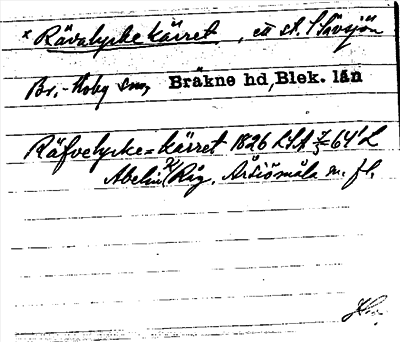 × Rävalyckekärret, ett st. i Sävsjön
Br.-Hoby sn, Bräkne hd, Blek. län
Räfvelycke=kärret 1826 LSA 64' L
Abelin Råg. Årsiömåla m. fl.